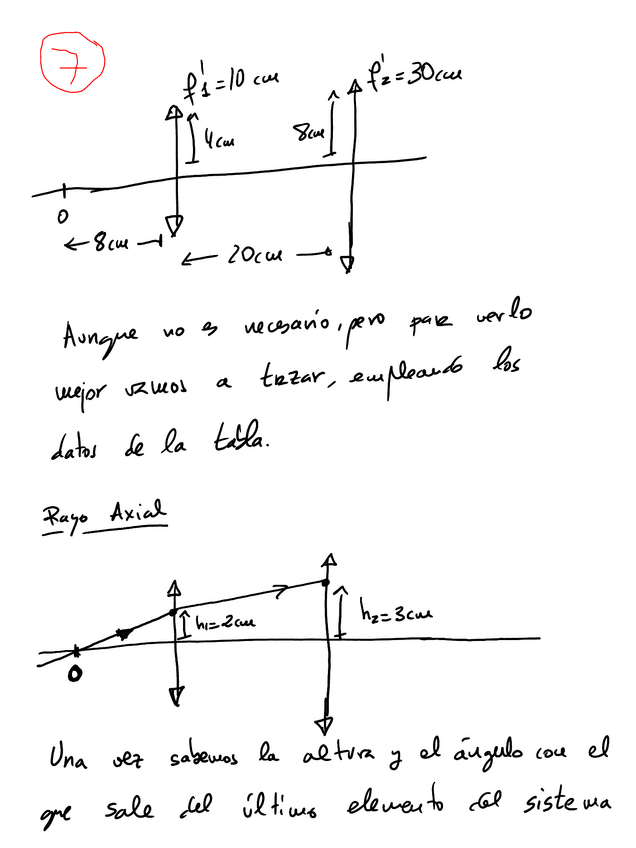 7
f'1=10 cm
f'2=30cm
4cm
8cm
O
8cm
20cm
Aunque no es necesario, pero para verlo
mejor vamos a trazar, empleando los
datos de la tabla.
Rayo Axial
h1=2cm
h2=3cm
O
Una vez sabemos la altura y el ángulo con el
que sale del último elemento del sistema